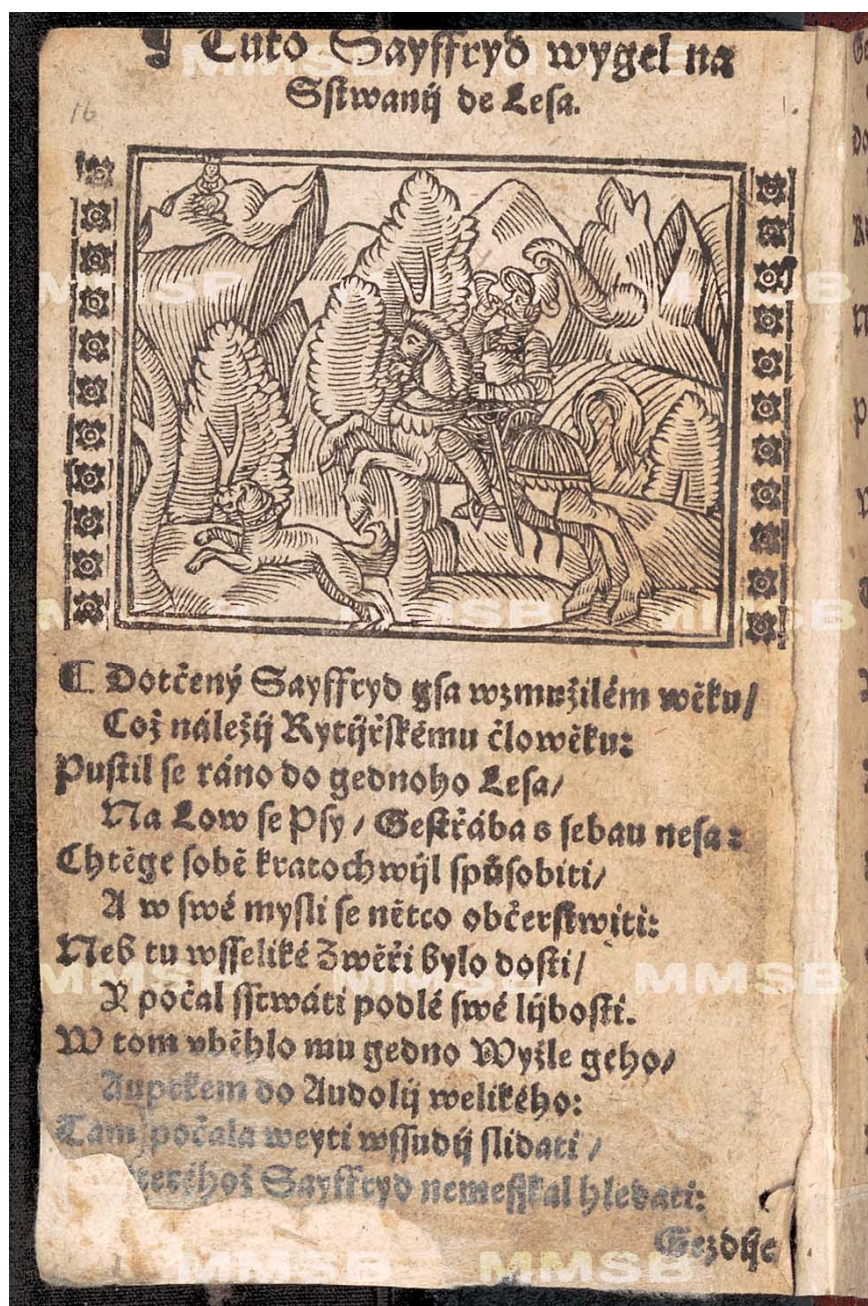 ¶ Tuto Sayffryd wygel na
Sstwanij de Lesa.
16
¶ Dotčený Sayffryd gsa wzmužilém wěku/
Což náležij Rytijřskému člowěku:
Pustil se ráno do gednoho Lesa/
Na Low se Psy / Gestřába s sebau nesa:
Chtěge sobě kratochwijl spůsobiti/
A w swé mysli se nětco občerstwiti:
Neb tu wsseliké Zwěři bylo dosti/
Y počal sstwáti podlé swé lijbosti.
W tom vběhlo mu gedno Wyžle geho/
Auprkem do Audolij welikého:
Tam počala weyti wssudij slidati /
Sayffryd nemesskal hledati:
Gezdije
MMSB
MMSB
MMSB
MMSB
MMSB
MMSB
MMSB
MMSB